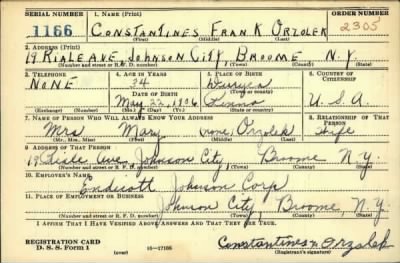 SERIAL NUMBER 1. NAME (Print) ORDER NUMBER
1166 CONSTANTINES FRANK ORZOLEK 2305
(First) (Middle) (Last)
2. ADDRESS (Print)
19 RIALE AVE JOHNSON CITY, BROOME N.Y.
(Number and street or R. F. D. number) (Town) (County) (State)
3. TELEPHONE 4. AGE IN YEARS 5. PLACE OF BIRTH 6. COUNTRY OF CITIZENSHIP
NONE 34
DATE OF BIRTH (Town or county)
May 22, 1906 Penna U.S.A.
(Mo.) (Day) (Yr.) (State or country)
7. NAME OF PERSON WHO WILL ALWAYS KNOW YOUR ADDRESS 8. RELATIONSHIP OF THAT PERSON
Mrs Mary (none) Orzolek Wife
(Mr., Mrs., Miss) (First) (Middle) (Last)
9. ADDRESS OF THAT PERSON
19 Ave, Johnson City, Broome N.Y.
(Number and street or R. F. D. number) (Town) (County) (State)
10. EMPLOYER'S NAME
Endicott Johnson Corp
11. PLACE OF EMPLOYMENT OR BUSINESS
Johnson City, Broome, N.Y.
(Number and street or R. F. D. number) (Town) (County) (State)
I AFFIRM THAT I HAVE VERIFIED ABOVE ANSWERS AND THAT THEY ARE TRUE.
REGISTRATION CARD
D. S. S. Form 1 (over) 16—17105 Constantines Orzolek
(Registrant's signature)